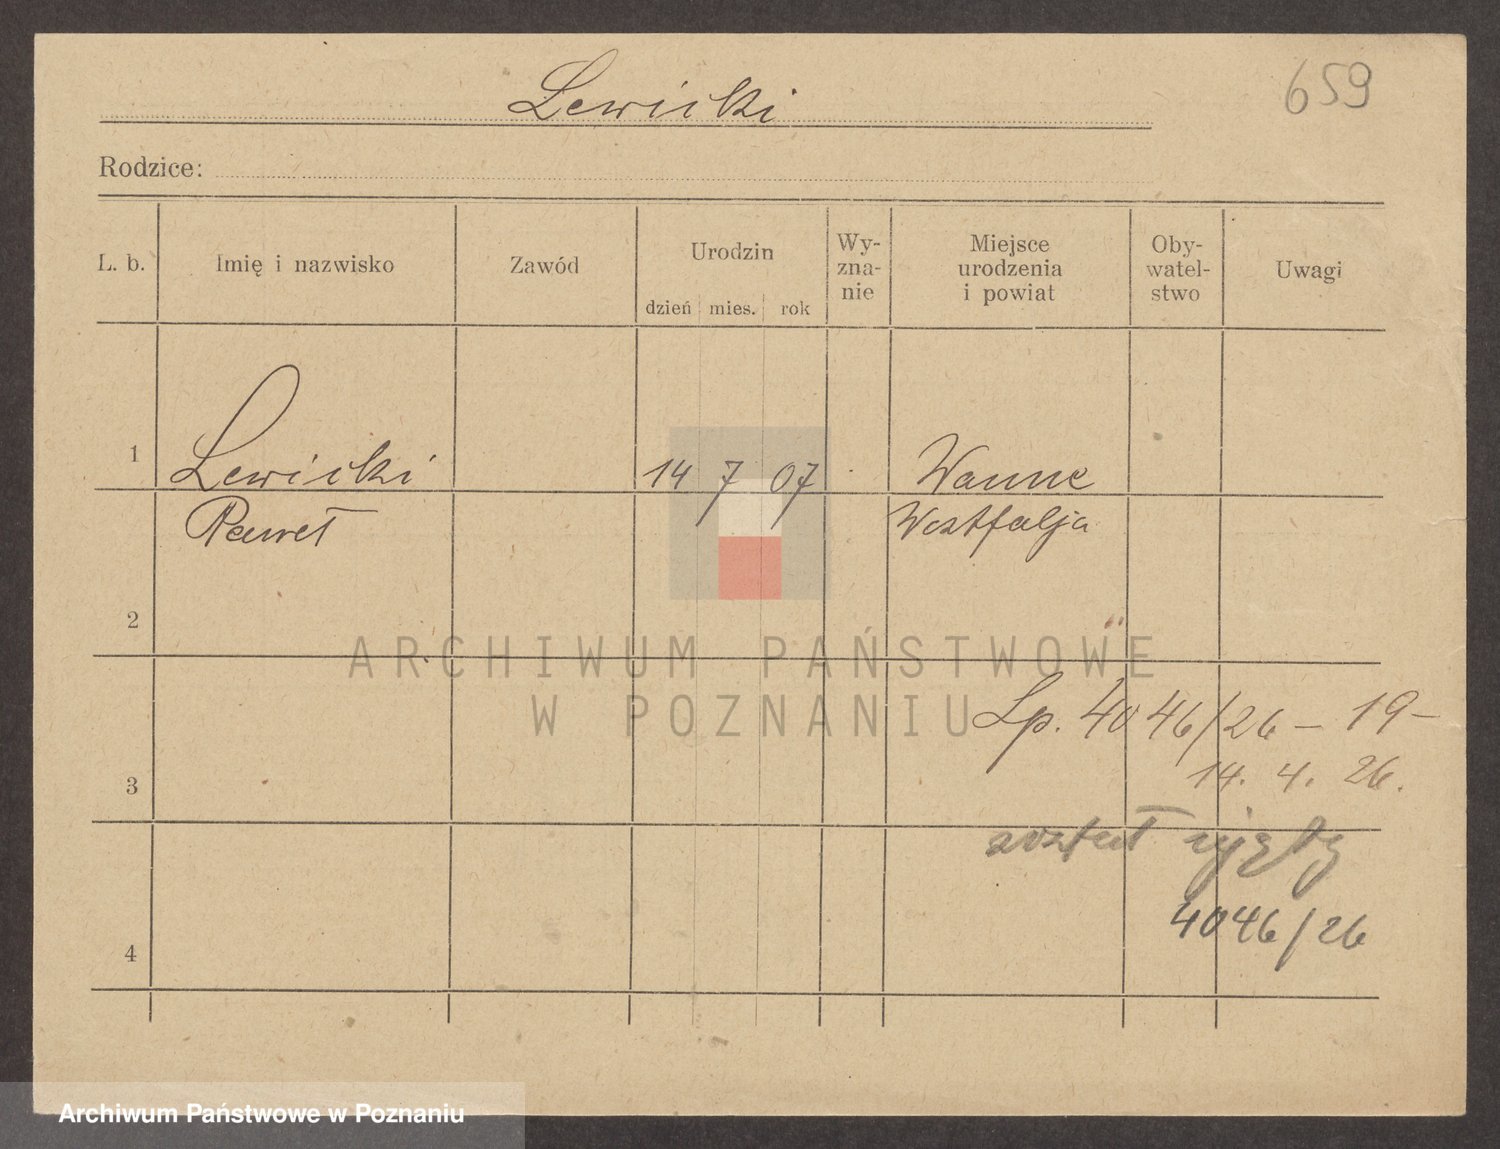 Lewicki
659
Rodzice:
L. b.
Imię i nazwisko
Zawód
Urodzin
dzień mies. rok
Wy-
zna-
nie
Miejsce
urodzenia
i powiat
Oby-
watel-
stwo
Uwagi
1
Lewicki
14 7 07
Wanne
Paweł
Westfalja
2
ARCHIWUM PAŃSTWOWE
W POZNANIU
Lp. 4046/26 – 19 –
14. 4. 26.
3
został
4046/26
4
Archiwum Państwowe w Poznaniu